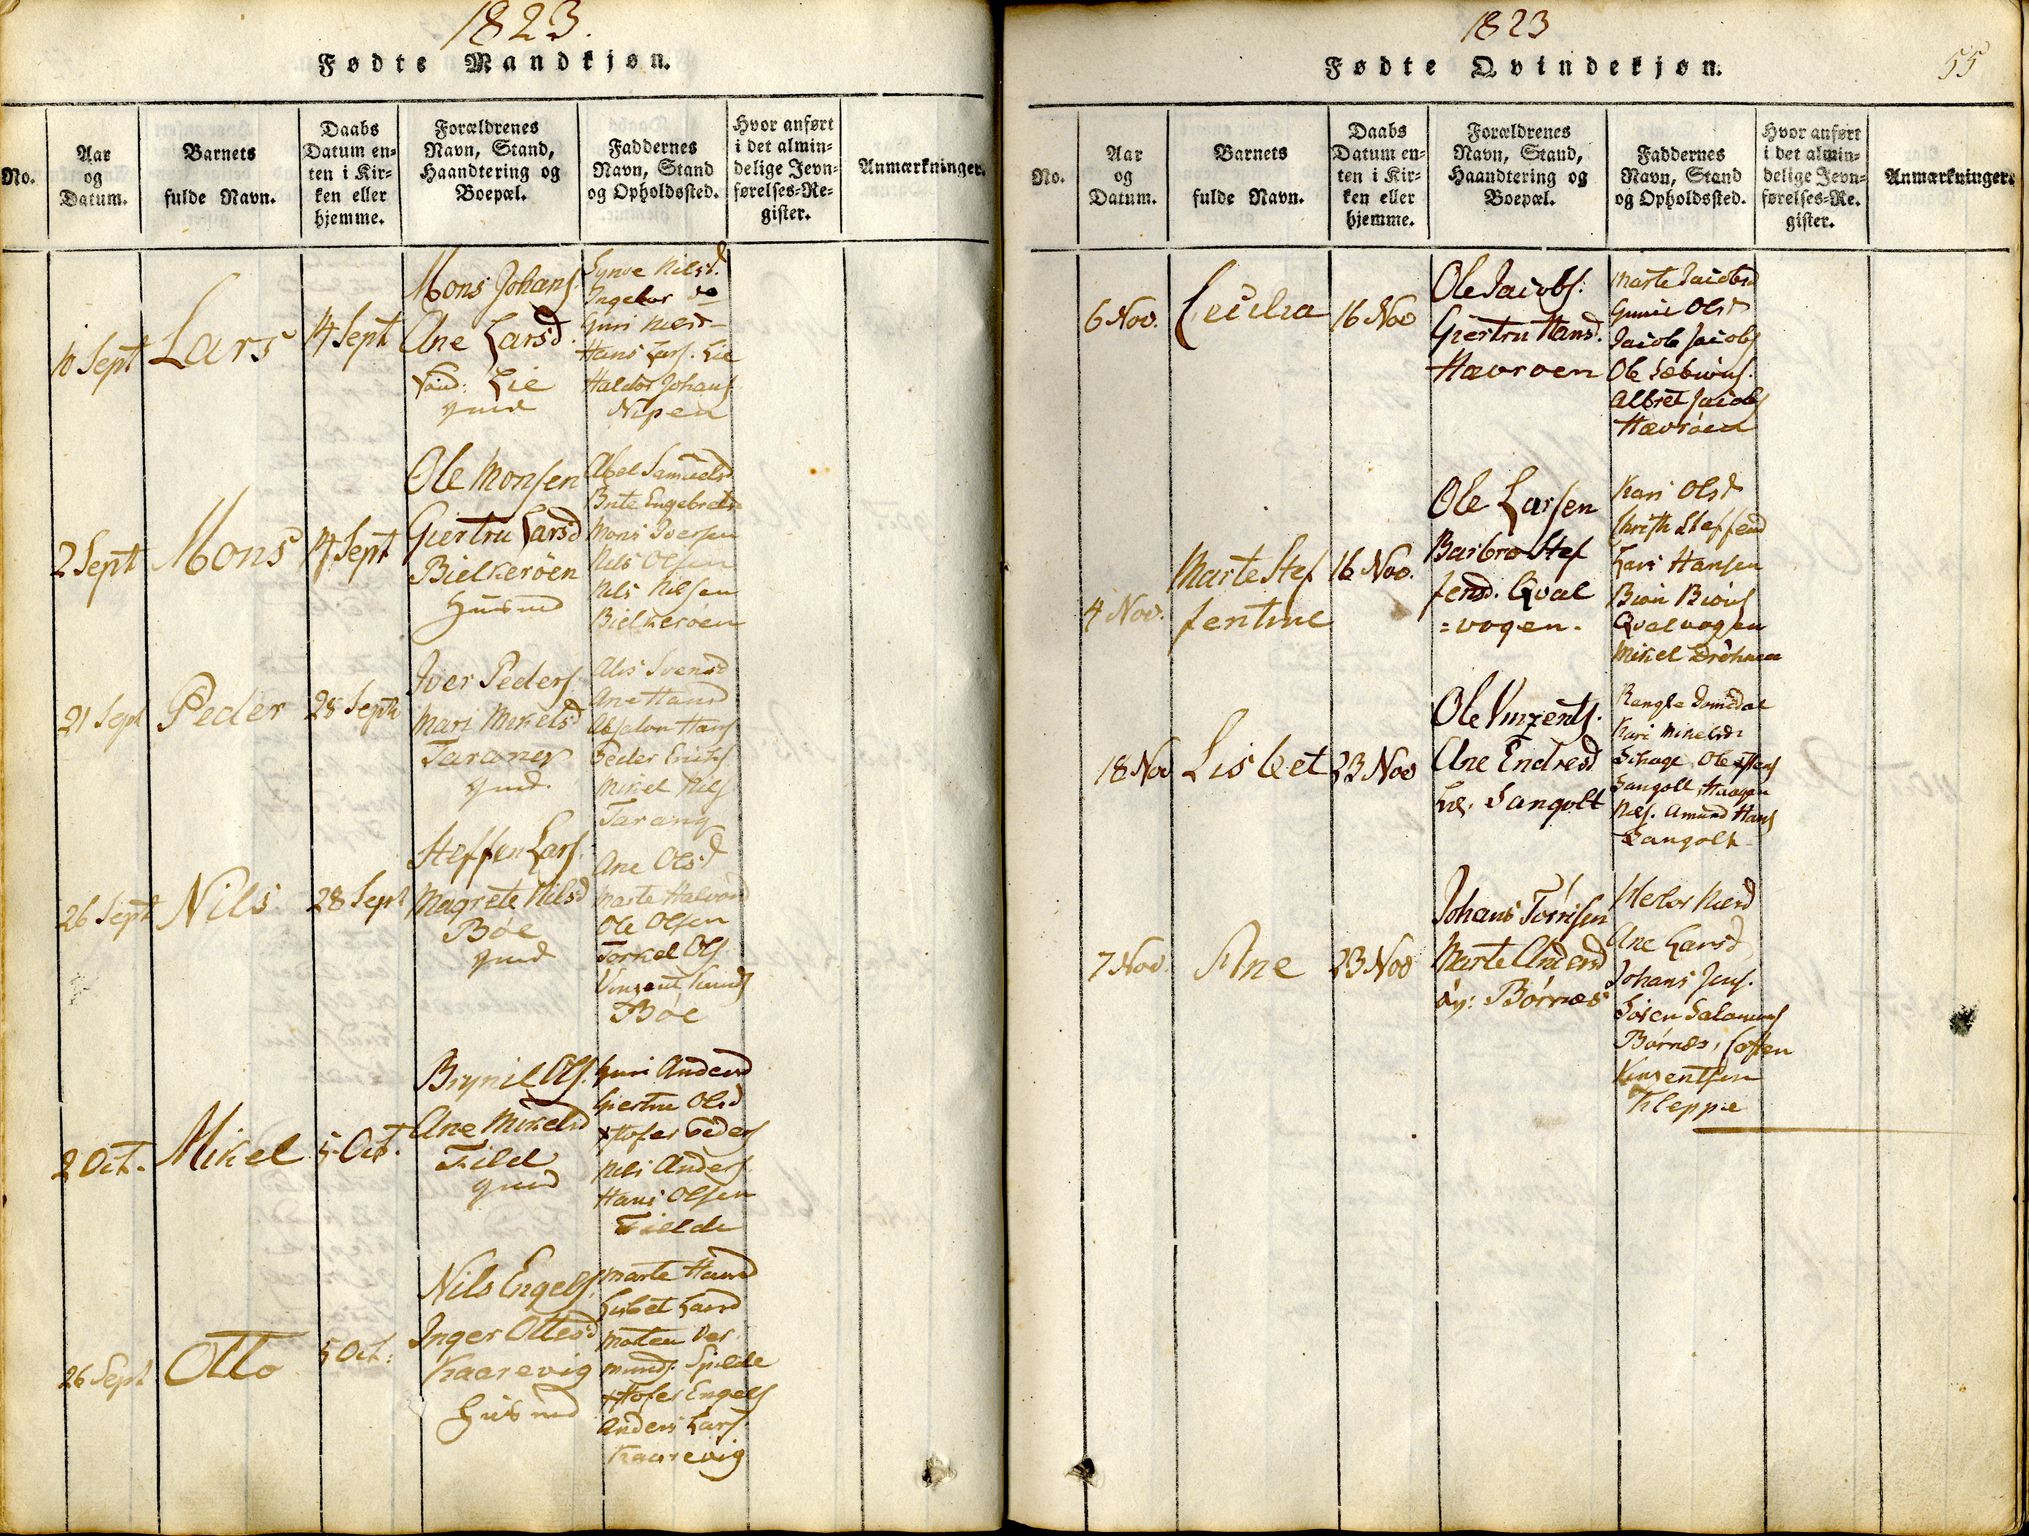 1823.
Fødte Mandkjøn.
No.
Aar
og
Datum.
Barnets
fulde Navn.
Daabs
Datum en-
ten i Kir-
ken eller
hjemme.
Forældrenes
Navn, Stand,
Haandtering og
Boepæl.
Faddernes
Navn, Stand
og Opholdssted.
Hvor anført
i det almin-
delige Jevn-
førelses-Re-
gister.
Anmærkninger.
10 Sept
Lars
14 Sept
Mons Johans.
Ane Larsd.
Lie
gmd
Synve Nilsd.
Ingebor do
Guri Nilsd
Hans Lars. Lie
Haldor Johans
Nipen
2 Sept
Mons
14 Sept
Ole Monsen
Giertru Larsd
Bielkerøen
Husmd
Abel Samuelsd
Brite Engebretsd
Mons Iversen
Nils Olsen
Nils Nilsen
Bielkerøen
21 Sept
Peder
28 Sept
Iver Peders.
Mari Mikelsd
Taranger
gmd.
Alis Svensd
Ane Hansd
Absalon Hans
Peder Eriks
Mikel Nils
Tarang
26 Sept
Nils
28 Sept
Steffen Lars.
Magrete Nilsd
Bøe
gmd
Ane Olsd
Marte Halvord
Ole Olsen
Torkel Ols
Vinzent Knuds
Bøe
2 Oct.
Mikel
5 Oct.
Brynil Ols.
Ane Mikelsd
Fild
gmd
Guri Andersd
Giertru Olsd
Kristofer Peders
Nils Anders
Hans Olsen
Fielde
26 Sept
Otto
5 Oct:
Nils Engels.
Inger Ottesd
Kaarevig
Husmd
Marte Hansd
Lisbet Larsd
Maten Ver
munds. Spilde
Kristofer Engels
Anders Lars.
Kaarevig
1823
55
Fødte Qvindekjøn.
No.
Aar
og
Datum.
Barnets
fulde Navn.
Daabs
Datum en-
ten i Kir-
ken eller
hjemme.
Forældrenes
Navn, Stand,
Haandtering og
Boepæl.
Faddernes
Navn, Stand
og Opholdssted.
Hvor anført
i det almin-
delige Jevn-
førelses-Re-
gister.
Anmærkninger.
6 Nov.
Cecilia
16 Nov
Ole Jacobs:
Giertru Hans.
Hævroen
Marte Jacobsd
Gunil Olsd
Jacob Jacobs
Ole Sæbiørns.
Albret Jacobs
Hævrøen
4 Nov.
Marte Stef
fentine
16 Nov.
Ole Larsen
Barbro Stef
fensd. Qval
=vogen.
Kari Olsd
Christi Steffend
Lars Hansen
Biørn Biørns
Qvalvogen
Mikel
18 Nov
Lisbet
23 Nov
Ole Vinzents.
Ane Endresd
Sangolt
Rangle
Kari Mikelsd
Ole
Sangolt, Haagen
Nils. Amund Hans
Sangolt
7 Nov.
Ane
23 Nov
Johans Torrisen
Marte Andersd
Børnæs
Ane Larsd
Johans Jens.
Søren Salamons
Børnæs,
Vinzentsen
Kleppe